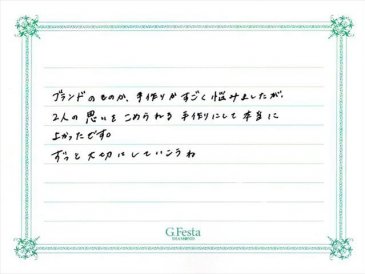 ブランドのものか、手作りかすごく悩みましたが、
2人の思いをこめられる手作りにして本当に
よかったです。
ずっと大切にしていこうね
G.Festa
DIAMOND